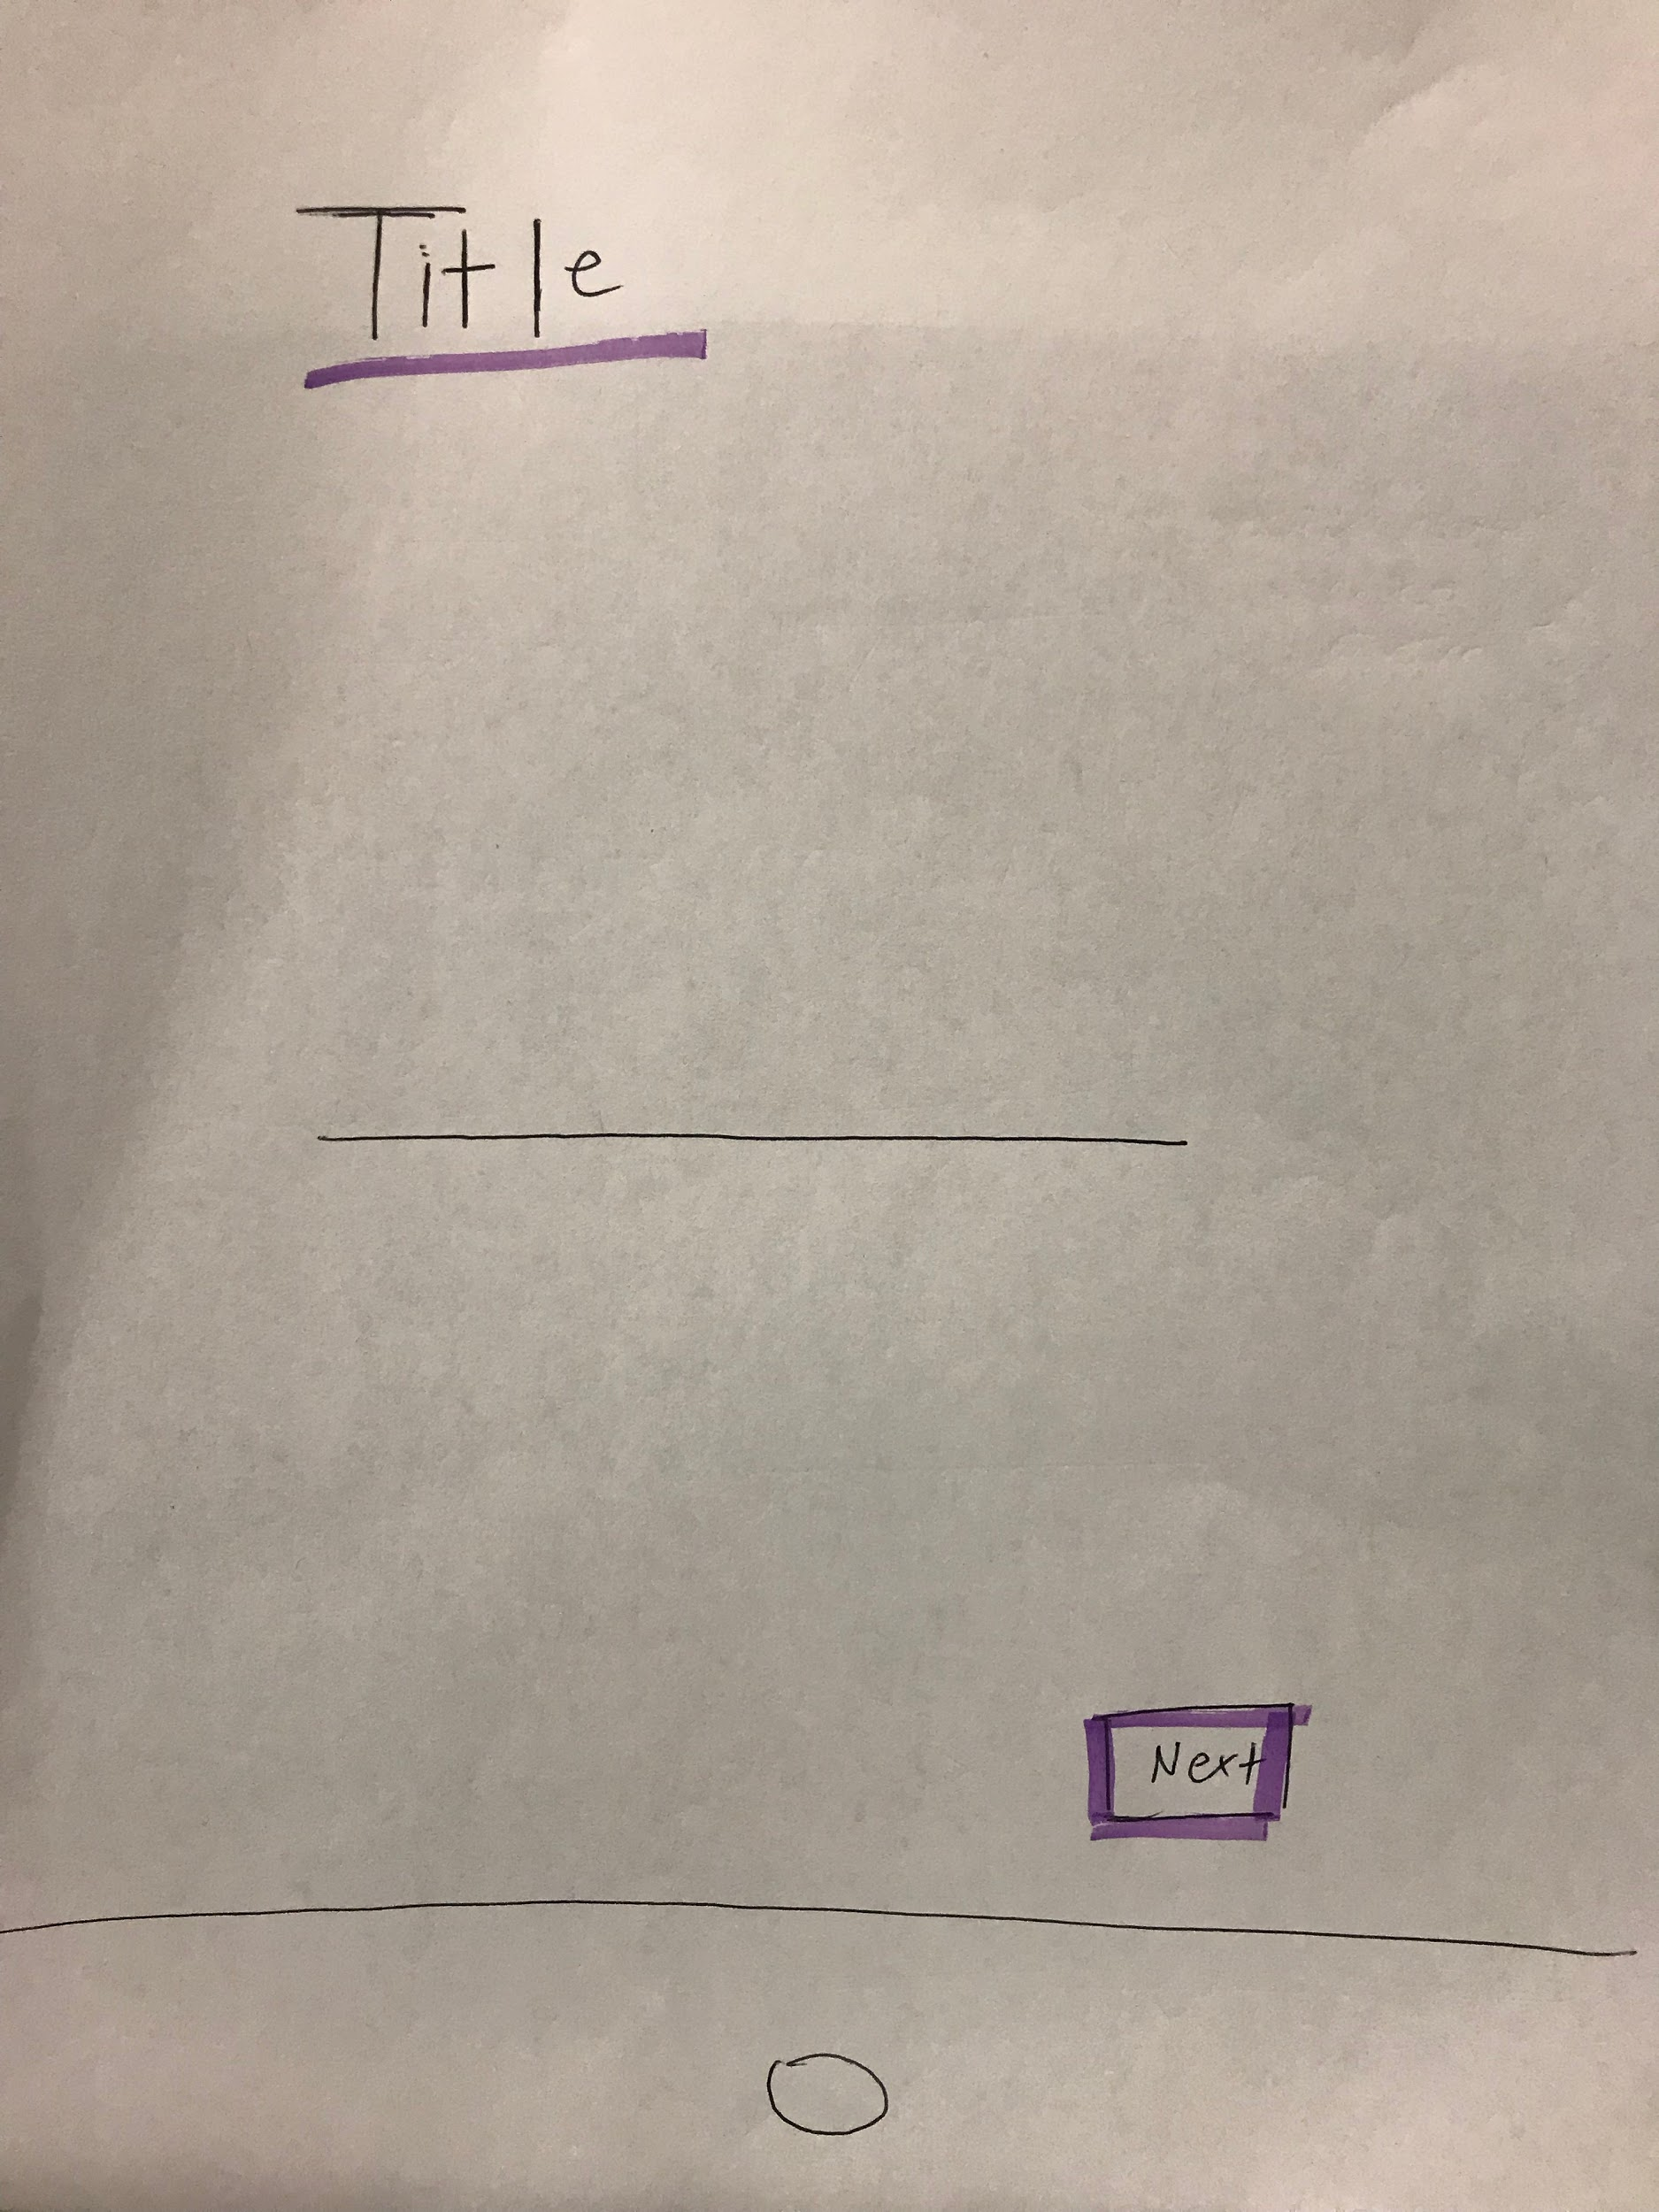 Title
Next